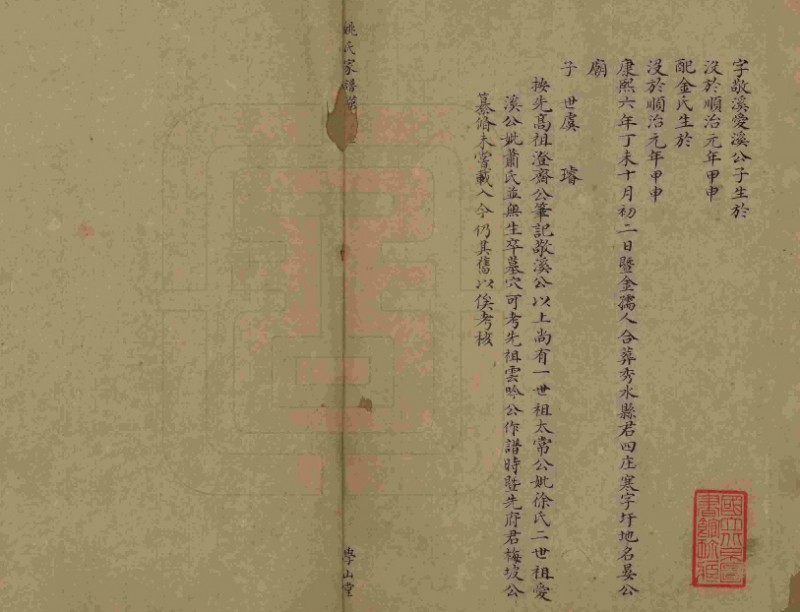 字敬溪愛溪公子生於
沒於順治元年甲申
配金氏生於
沒於順治元年甲申
康熙六年丁未十月初二日暨金孺人合葬秀水縣君四庄寒字圩地名晏公
廟
子 世虞 璿
按先高祖澄齋公筆記敬溪公以上尚有一世祖太常公妣徐氏二世祖愛
溪公妣蕭氏並無生卒墓穴可考先祖雲吟公作譜時暨先府君梅坡公
纂脩未嘗載入今仍其舊以俟考核
姚氏家譜
學山堂